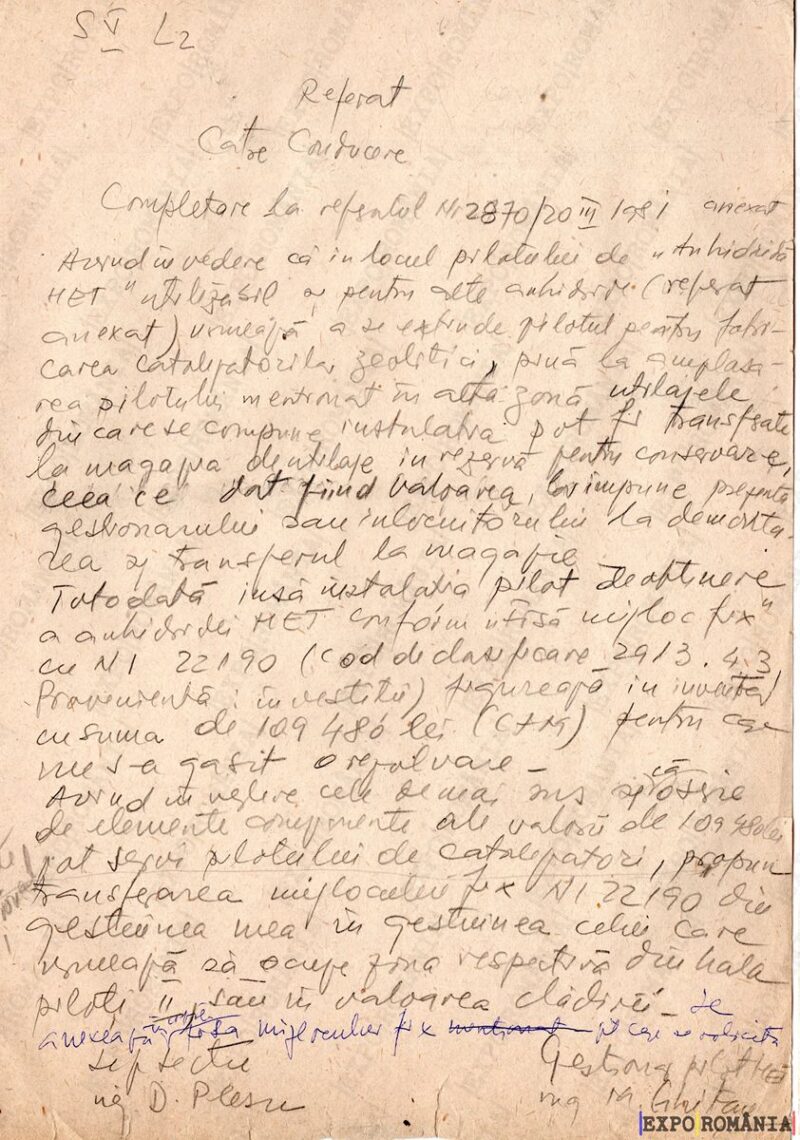 S V L2
Referat
Catre Conducere
Completare la referatul Nr 2870/20 III 1981 anexat
Avind in vedere că in locul pilotului de "Anhidridă
HET" utilizabil și pentru alte anhidride (referat
anexat) urmează a se extinde pilotul pentru fabri-
carea catalizatorilor zeolitici, pină la amplasa-
rea pilotului mentionat în altă zonă utilajele
din care se compune instalatia pot fi transferate
la magazia de utilaje in rezervă pentru conservare,
ceea ce dat fiind valoarea, lor impune prezenta
gestionarului sau inlocuitorului la demonta-
rea și transferul la magazie
Totodată insă instalatia pilot de obtinere
a anhidridei HET conform "fisă mijloc fix"
cu NI 22190 (cod de clasificare 2913.4.3
Provenientă: investitii) figurează in inventar
cu suma de 109 480 lei (C+M) pentru care
nu s-a gasit o rezolvare –
Avind in vedere cele de mai sus și că o serie
de elemente componente ale valorii de 109 480 lei
pot servi pilotului de catalizatori, propun
transferarea mijlocului fix NI 22190 din
gestiunea mea în gestiunea celui care
urmează să ocupe zona respectivă din hala
piloti II sau in valoarea clădirii – se
anexează fisa mijlocului fix pt care se solicita
Sef sectie
ing D. Plesu
Gestionar pilot HET
ing
EXPO ROMÂNIA